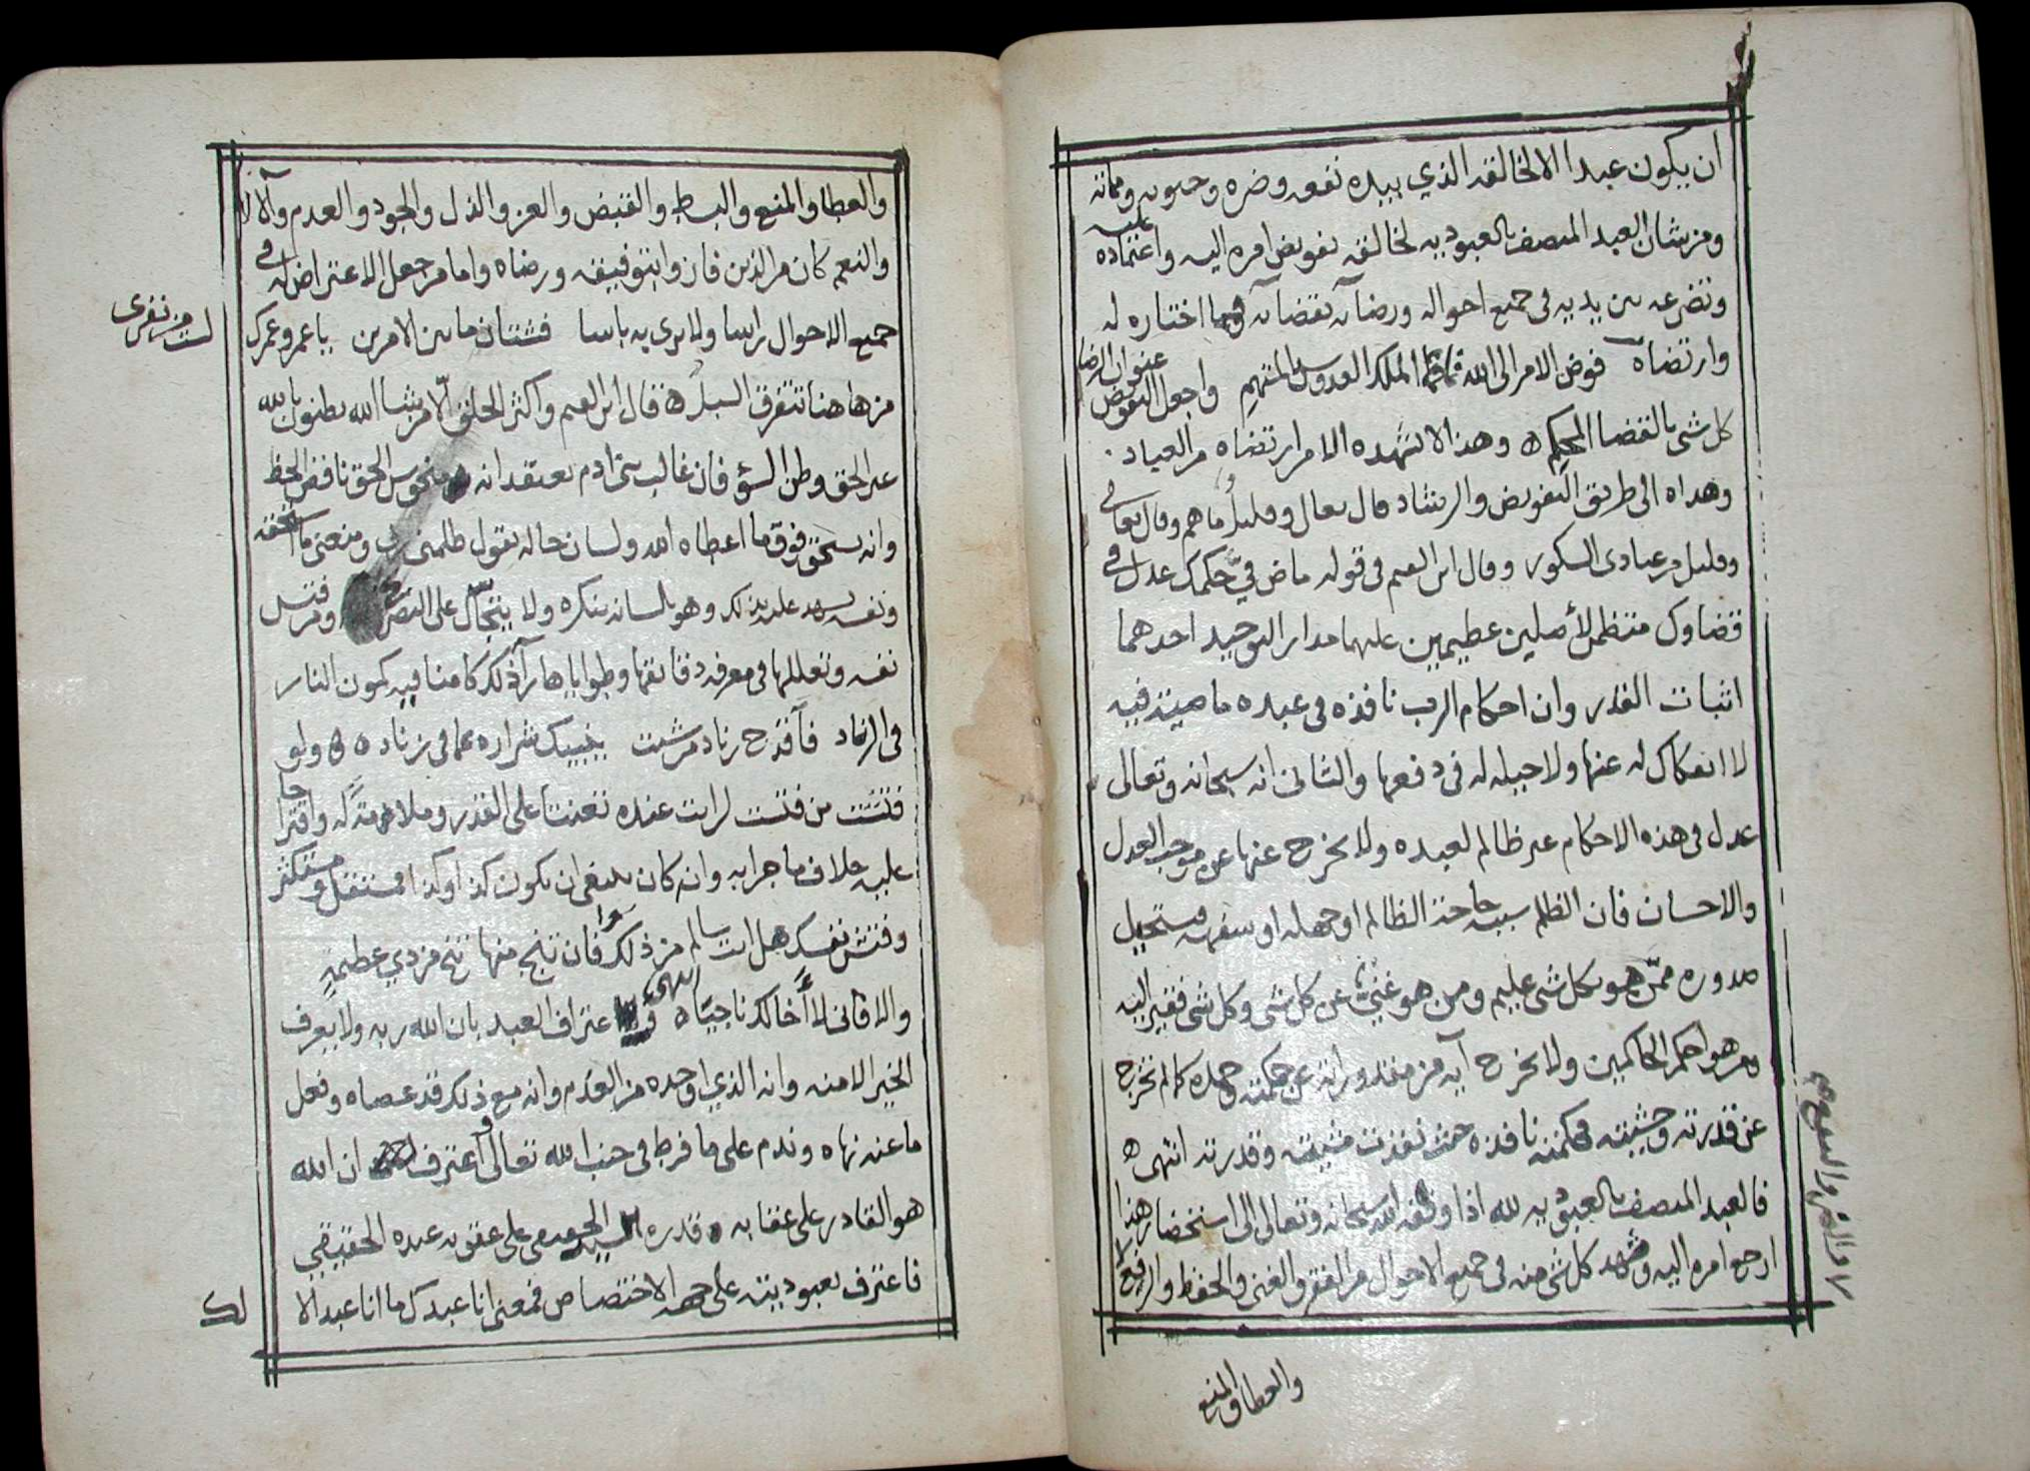 ان يكون عبدا الا لخالقه الذي بيده نفعه وضره وحيوته ومماته
ومن شان العبد المتصف بالعبوديه لخالقه تفويض امره اليه واعتماده عليه
وتضرعه بين يديه في جميع احواله ورضاه بقضائه فيما اختاره له
وارتضاه فوض الامر الى الله الملك العدوس المنتهم واجعل التفويض عنوان الرضا
كل شي بالقضا المحكم ه وهذا لا يشهده الا من ارتضاه من العباد
وهداه الى طريق التفويض والرشاد قال تعالى وقليل ما هم وقال تعالى
وقليل من عبادى الشكور وقال ابن القيم في قوله ماض فيّ حكمك عدل في
قضاوك منتظم لأصلين عظيمين عليهما مدار التوحيد احدهما
اثبات القدر وان احكام الرب نافذه فى عبده ماضية فيه
لا انفكاك له عنها ولا حيله له فى دفعها والثانى انه سبحانه وتعالى
عدل فى هذه الاحكام غير ظالم لعبده ولا يخرج عنها عن موجب العدل
والاحسان فان الظلم سببه حاجة الظالم او جهله او سفهه فيستحيل
صدوره ممّن هو بكل شى عليم ومن هو غنيّ عن كل شى وكل شى فقير اليه
ومن هو احكم الحاكمين ولا يخرج آيه من مقدوراته عن حكمته وحمده كما لم تخرج
عن قدرته ومشيته فحكمته نافذه حيث نفذت مشيته وقدرته انتهى ه
فالعبد المتصف بالعبوديه لله اذا وفقه الله سبحانه وتعالى الى استحضار هذا
ارجع امره اليه وشهد كل شى منه فى جميع الاحوال من الفقر والغنى والحفظ والرفع
والضر والنفع
والعطا والمنع
والعطا والمنع والبسط والقبض والعز والذل والجود والعدم والآلا
والنعم كان من الذين فازوا بتوفيقه ورضاه واما من جعل الاعتراض له في
جميع الاحوال راسا ولا يرى به باسا فشتان ما بين الامرين يا عمرو عمرك
لست من نفرى
من هاهنا تتفرق السبل ه قال ابن القيم واكثر الخلق الّا من شا الله يظنون بالله
غير الحق وظن السؤ فان غالب بنى ادم يعتقد انه منحوس الحق ناقص الحظ
وانه يستحق فوق ما اعطاه الله ولسان حاله يقول ظلمنى ربى ومنعنى ما استحقه
ونفسه تشهد عليه بذلك وهو بلسانه ينكره ولا يتجاسر على التصريح ومن فتش
نفسه وتغلغل فى معرفه دفائنها وطواياها رآ ذلك كامنا فيه كمون النار
فى الزناد فآقدح زناد من شيت ينبيك شراره عما فى زناده ه ولو
فتشت من فتشت لرايت عنده تعنتا على القدر وملامة له واقتراحا
عليه خلاف ما جرا به وانه كان ينبغى ان يكون كذا وكذا فمستقل ومستكثر
وفتش نفسك هل انت سالم من ذلك فان تنج منها تنج من ذي عظيمة
والا فانى لا أخالك ناجيًا ه انتهى و اعتراف العبد بان الله ربه ولا يعرف
الخير الا منه وانه الذي اوجده من العدم وانه مع ذلك قد عصاه وفعل
ما عنه نهاه وندم على ما فرط فى جنب الله تعالى واعترف ان الله
هو القادر على عقابه قدره السيد الحقيقى على عقوبه عبده الحقيقي
فاعترف بعبوديته على جهه الاختصاص فمعنى انا عبدك ما انا عبد الا
لك